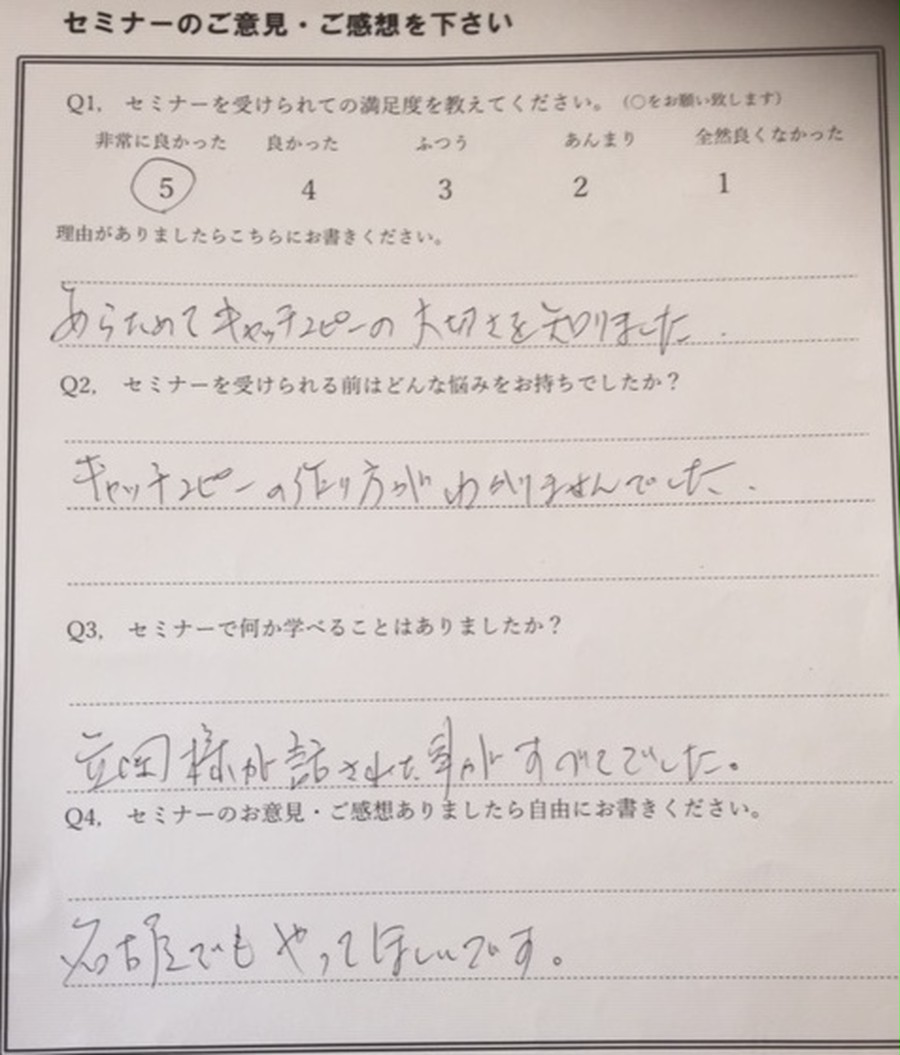 セミナーのご意見・ご感想を下さい
Q1, セミナーを受けられての満足度を教えてください。（○をお願い致します）
非常に良かった 良かった ふつう あんまり 全然良くなかった
5 4 3 2 1
理由がありましたらこちらにお書きください。
あらためてキャッチコピーの大切さを知りました.
Q2, セミナーを受けられる前はどんな悩みをお持ちでしたか？
キャッチコピーの作り方がわかりませんでした.
Q3, セミナーで何か学べることはありましたか？
様が話された事がすべてでした。
Q4, セミナーのお意見・ご感想ありましたら自由にお書きください。
名古屋でもやってほしいです。